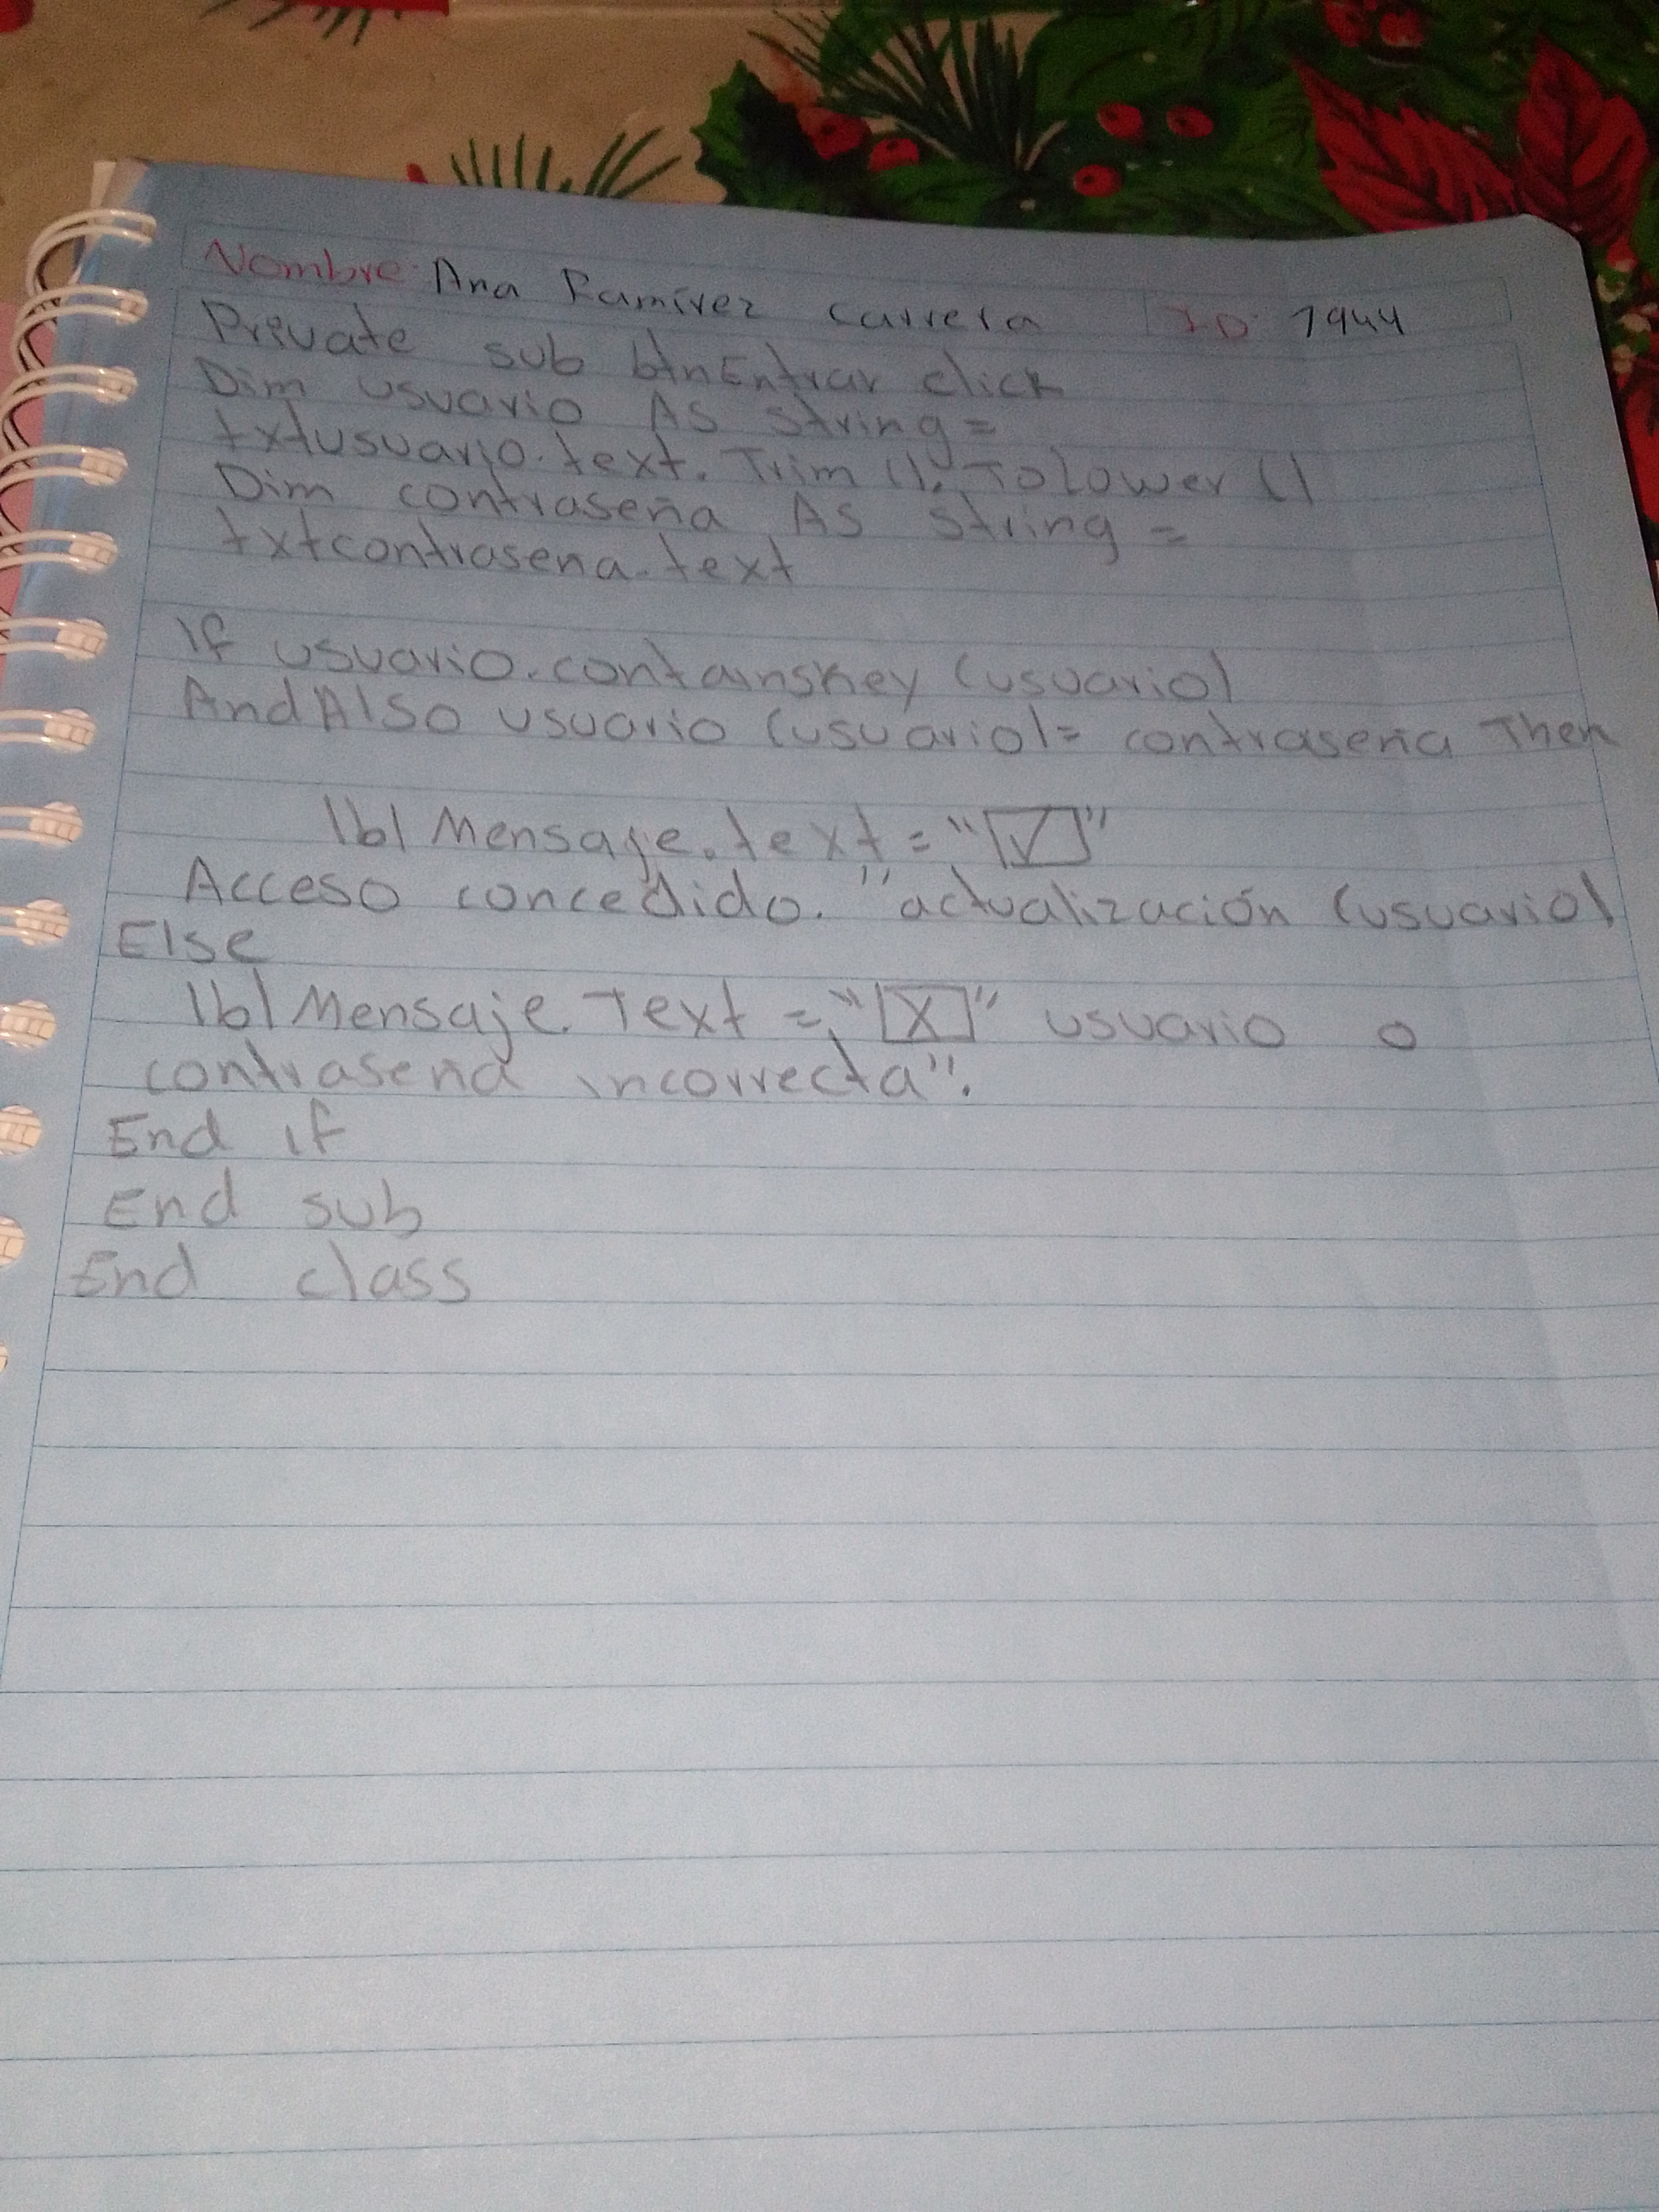 Nombre: Ana Ramírez Carrera ID: 1944
Prevate sub btnEntrar click
Dim usuario As string =
txtusuario.text.Trim ().ToLower ()
Dim contraseña As string =
txtcontrasena.text
If usuario.containskey (usuario)
AndAlso usuario (usuario)= contraseña Then
lbl Mensaje.text = "[✓]"
Acceso concedido. "actualización (usuario)
Else
lbl Mensaje.Text = "[X]" usuario o
contraseña incorrecta".
End if
End sub
End class